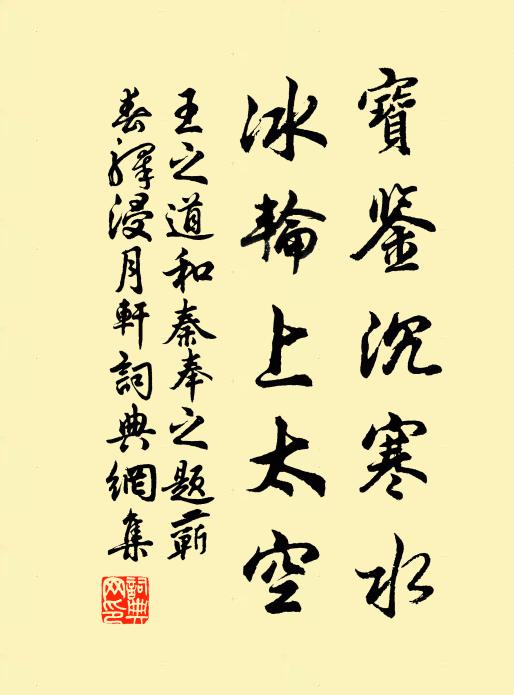 寶鑒沉寒水
冰輪上太空
王之道和秦奉之題蘄
春驛浸月軒詞典網集
詞典
网印